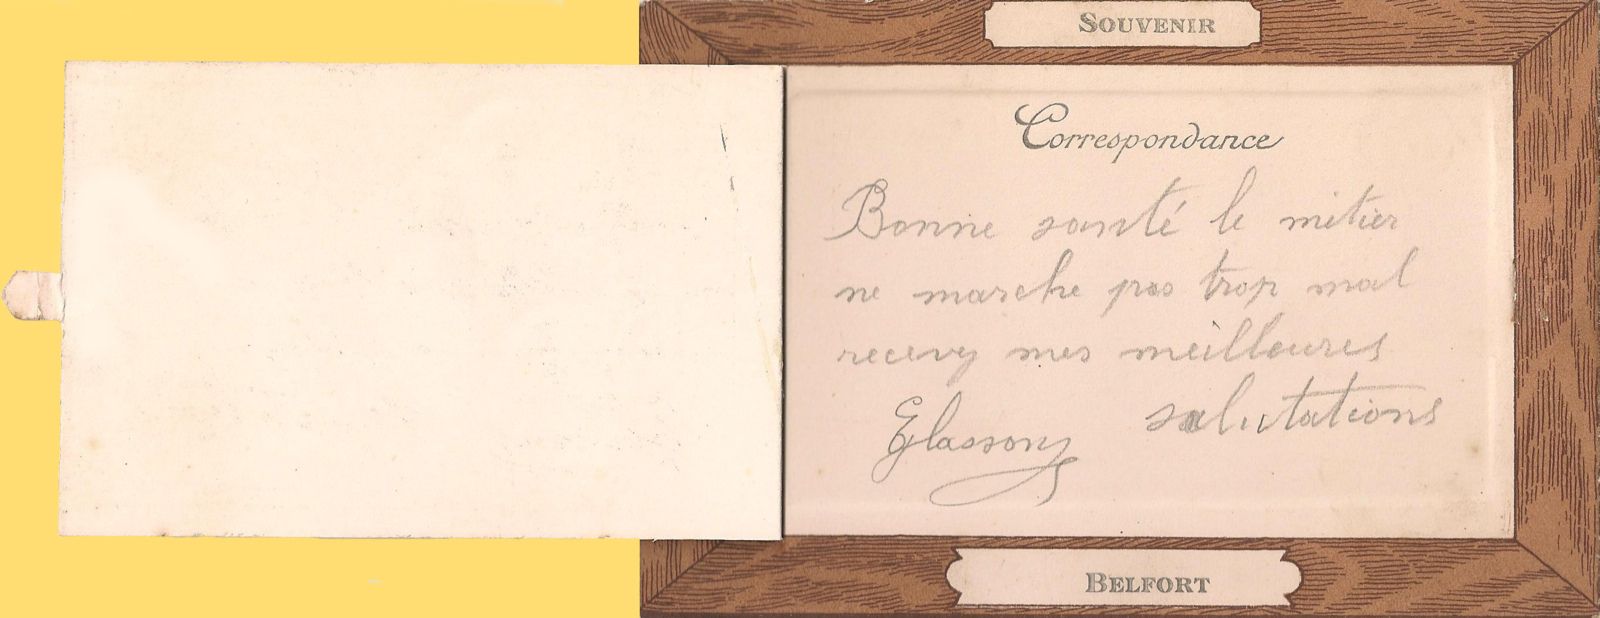 SOUVENIR
Correspondance
Bonne santé le métier
ne marche pas trop mal
recevez mes meilleures
salutations
Glasson
BELFORT